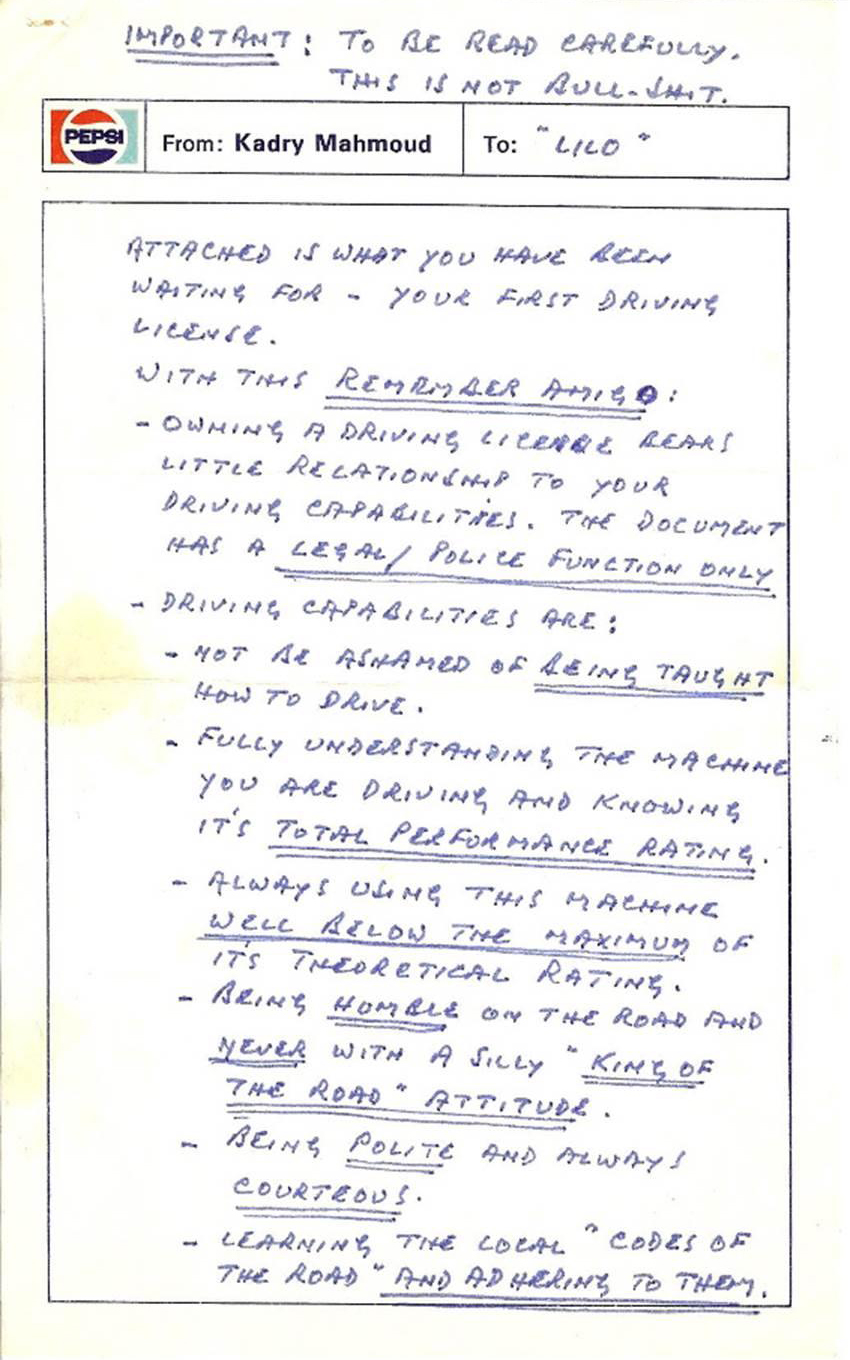 IMPORTANT: TO BE READ CAREFULLY.
THIS IS NOT BULL-SHIT.
PEPSI
From: Kadry Mahmoud
To: "LILO"
ATTACHED IS WHAT YOU HAVE BEEN
WAITING FOR - YOUR FIRST DRIVING
LICENSE.
WITH THIS REMEMBER AMIGO:
- OWNING A DRIVING LICENSE BEARS
LITTLE RELATIONSHIP TO YOUR
DRIVING CAPABILITIES. THE DOCUMENT
HAS A LEGAL/ POLICE FUNCTION ONLY
- DRIVING CAPABILITIES ARE:
- NOT BE ASHAMED OF BEING TAUGHT
HOW TO DRIVE.
- FULLY UNDERSTANDING THE MACHINE
YOU ARE DRIVING AND KNOWING
IT'S TOTAL PERFORMANCE RATING.
- ALWAYS USING THIS MACHINE
WELL BELOW THE MAXIMUM OF
IT'S THEORETICAL RATING.
- BEING HUMBLE ON THE ROAD AND
NEVER WITH A SILLY "KING OF
THE ROAD" ATTITUDE.
- BEING POLITE AND ALWAYS
COURTEOUS.
- LEARNING THE LOCAL "CODES OF
THE ROAD" AND ADHERING TO THEM.